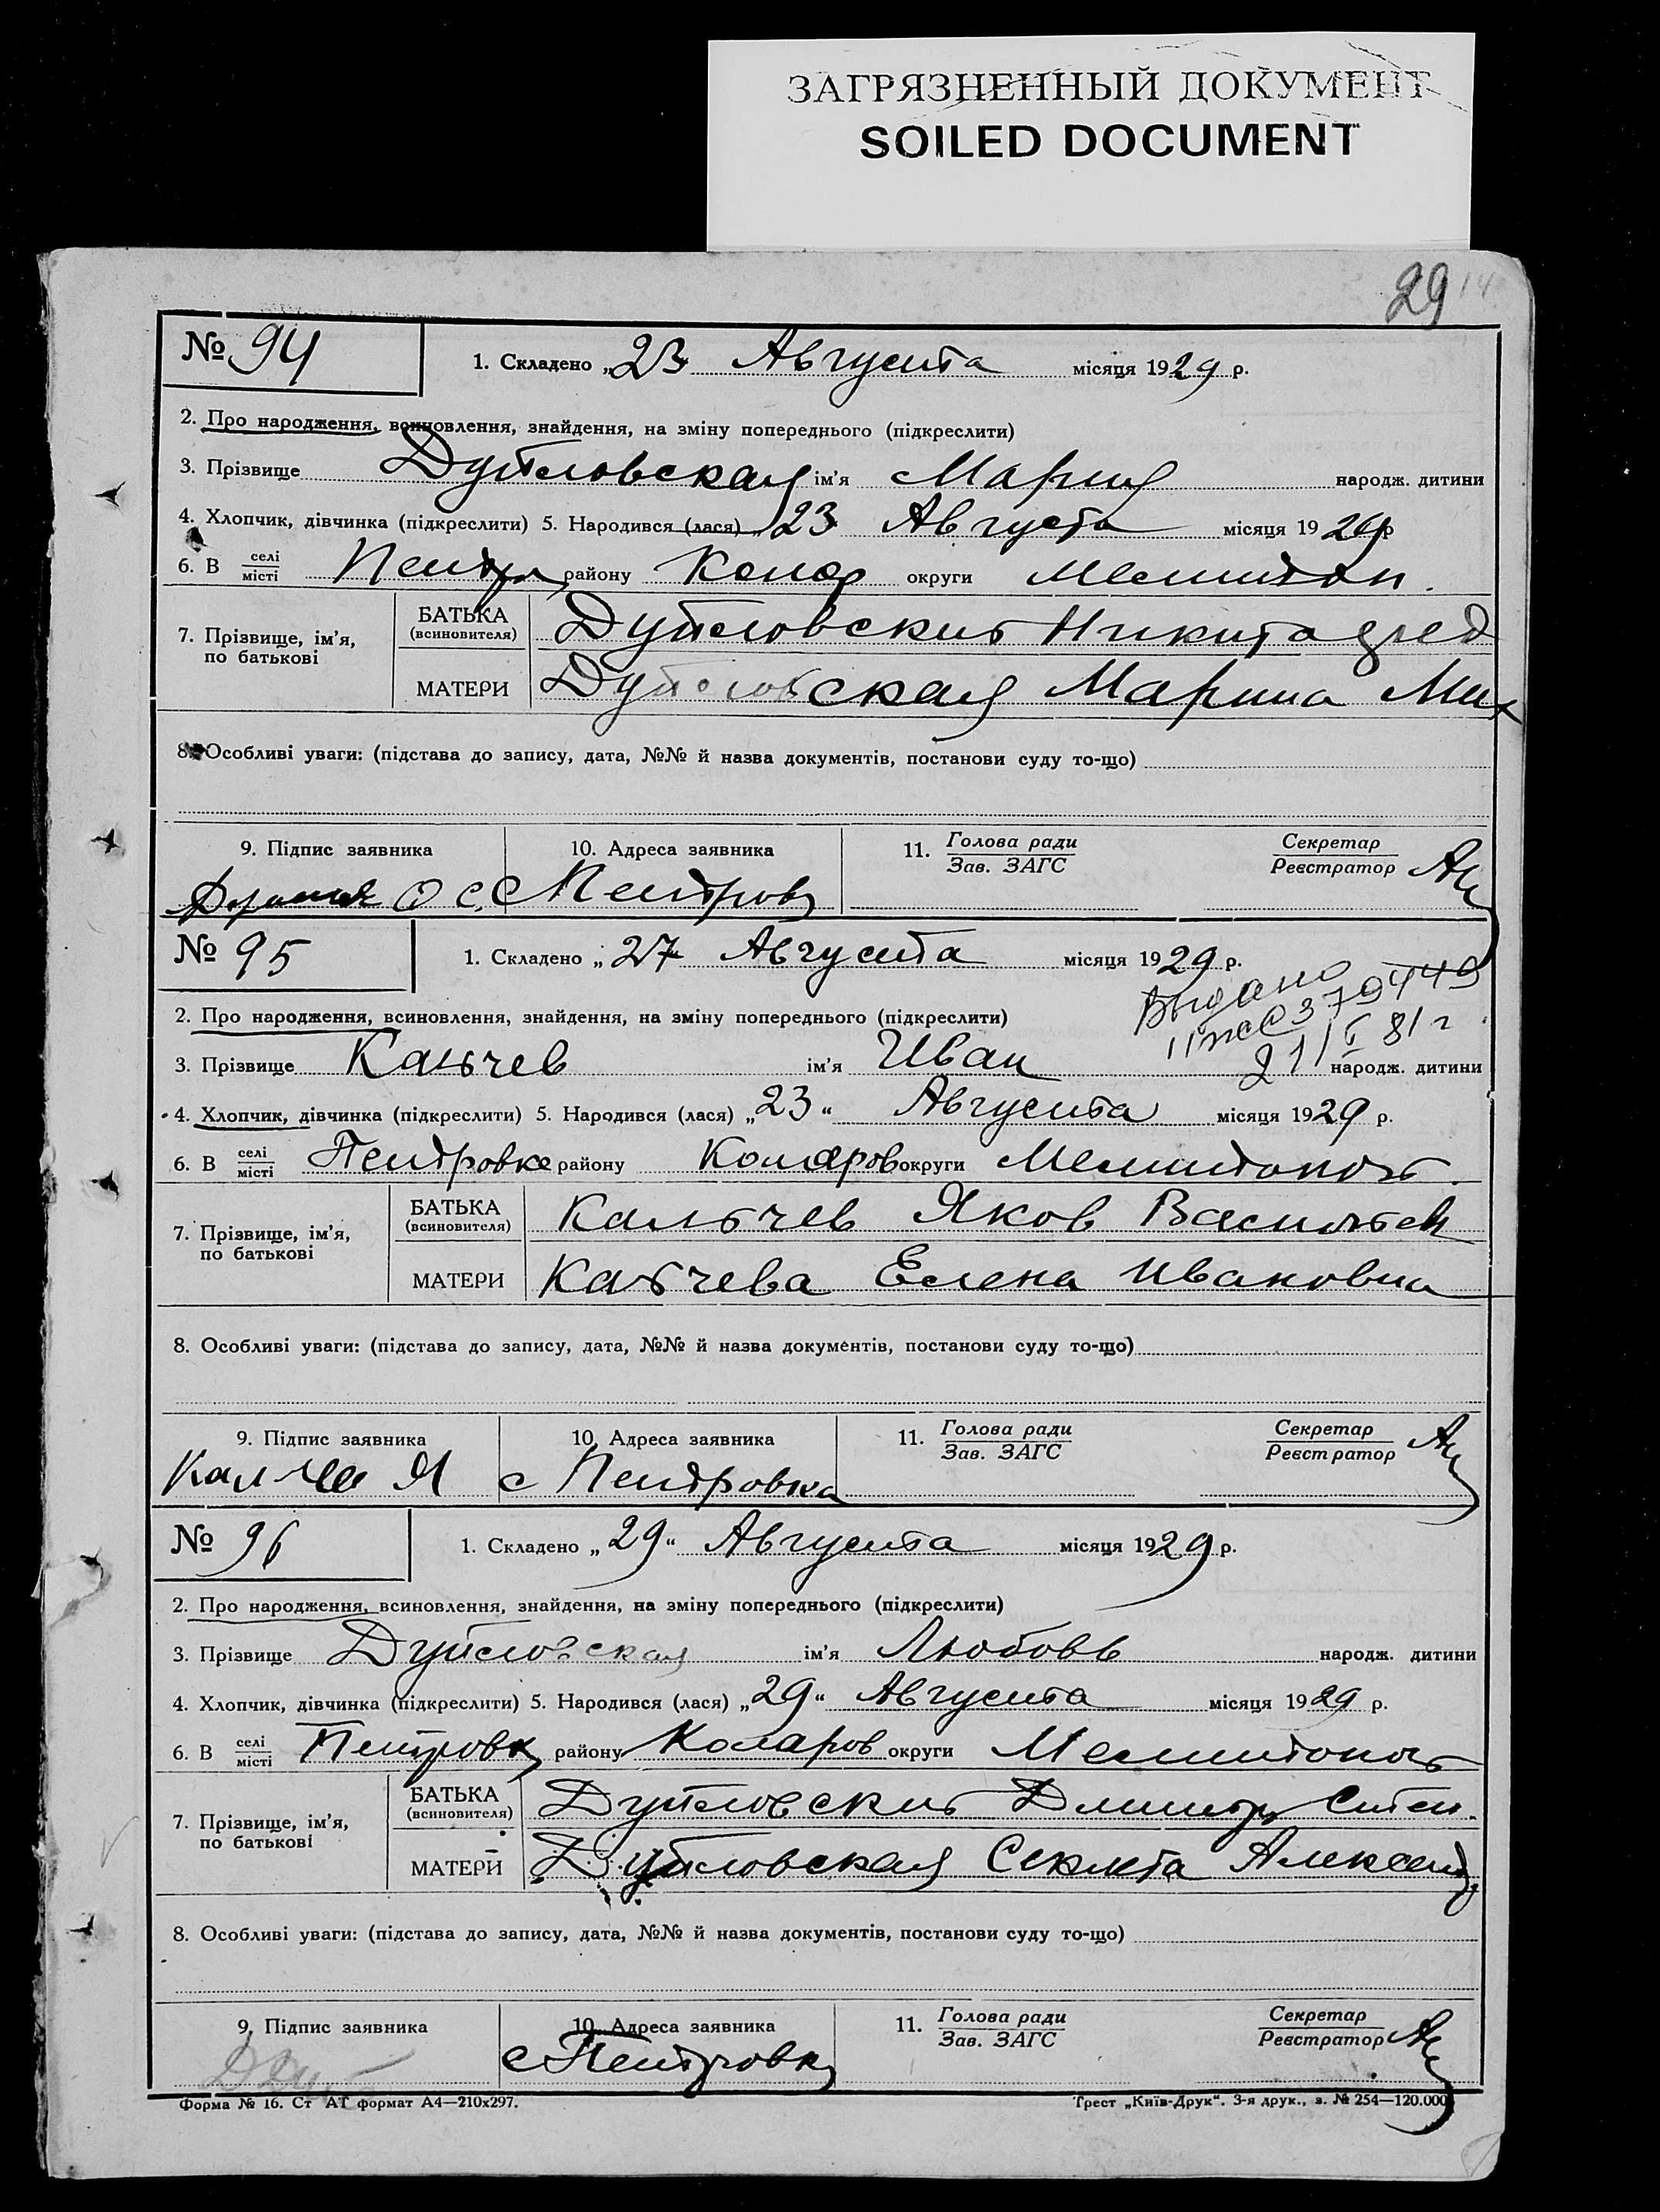 ЗАГРЯЗНЕННЫЙ ДОКУМЕНТ
SOILED DOCUMENT
29 14
№ 94 1. Складено „23 Августа місяця 1929 р.
2. Про народження, всиновлення, знайдення, на зміну попереднього (підкреслити)
3. Прізвище Дутловская ім'я Мария народж. дитини
4. Хлопчик, дівчинка (підкреслити) 5. Народився (лася) „23 Августа місяця 1929 р
6. В селі місті Петр району Колар округи Мелитоп.
7. Прізвище, ім'я, по батькові
БАТЬКА (всиновителя) Дутловский Никита
МАТЕРИ Дутловская Марина Мих
8. Особливі уваги: (підстава до запису, дата, №№ й назва документів, постанови суду то-що)
9. Підпис заявника 10. Адреса заявника 11. Голова ради Зав. ЗАГС Секретар Реєстратор
с Петровк
№ 95 1. Складено „27 Августа місяця 1929 р.
Выдано
379449
2. Про народження, всиновлення, знайдення, на зміну попереднього (підкреслити)
21/V 81 г
3. Прізвище Кальчев ім'я Иван народж. дитини
4. Хлопчик, дівчинка (підкреслити) 5. Народився (лася) „23“ Августа місяця 1929 р.
6. В селі місті Петровке району Коларов округи Мелитопол
7. Прізвище, ім'я, по батькові
БАТЬКА (всиновителя) Кальчев Яков Васильев
МАТЕРИ Кальчева Елена Ивановна
8. Особливі уваги: (підстава до запису, дата, №№ й назва документів, постанови суду то-що)
9. Підпис заявника 10. Адреса заявника 11. Голова ради Зав. ЗАГС Секретар Реєстратор
Калчев Я с Петровка
№ 96 1. Складено „29“ Августа місяця 1929 р.
2. Про народження, всиновлення, знайдення, на зміну попереднього (підкреслити)
3. Прізвище Дутловская ім'я Любовь народж. дитини
4. Хлопчик, дівчинка (підкреслити) 5. Народився (лася) „29“ Августа місяця 1929 р.
6. В селі місті Петровк району Коларов округи Мелитопол
7. Прізвище, ім'я, по батькові
БАТЬКА (всиновителя) Дутловский Дмитр Степ.
МАТЕРИ Дутловская Секлета Александ
8. Особливі уваги: (підстава до запису, дата, №№ й назва документів, постанови суду то-що)
9. Підпис заявника 10. Адреса заявника 11. Голова ради Зав. ЗАГС Секретар Реєстратор
с Петровк
Форма № 16. Ст АТ формат А4—210х297. Трест „Київ-Друк“. 3-я друк., з. № 254—120.000